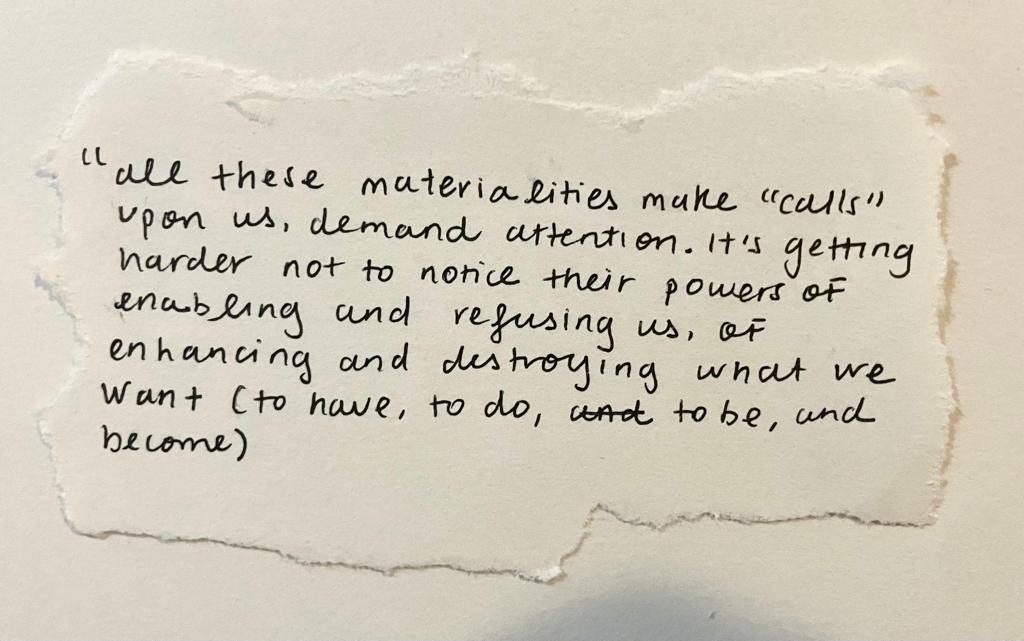 "all these materialities make "calls"
upon us, demand attention. It's getting
harder not to notice their powers of
enabling and refusing us, of
enhancing and destroying what we
want (to have, to do, and to be, and
become)